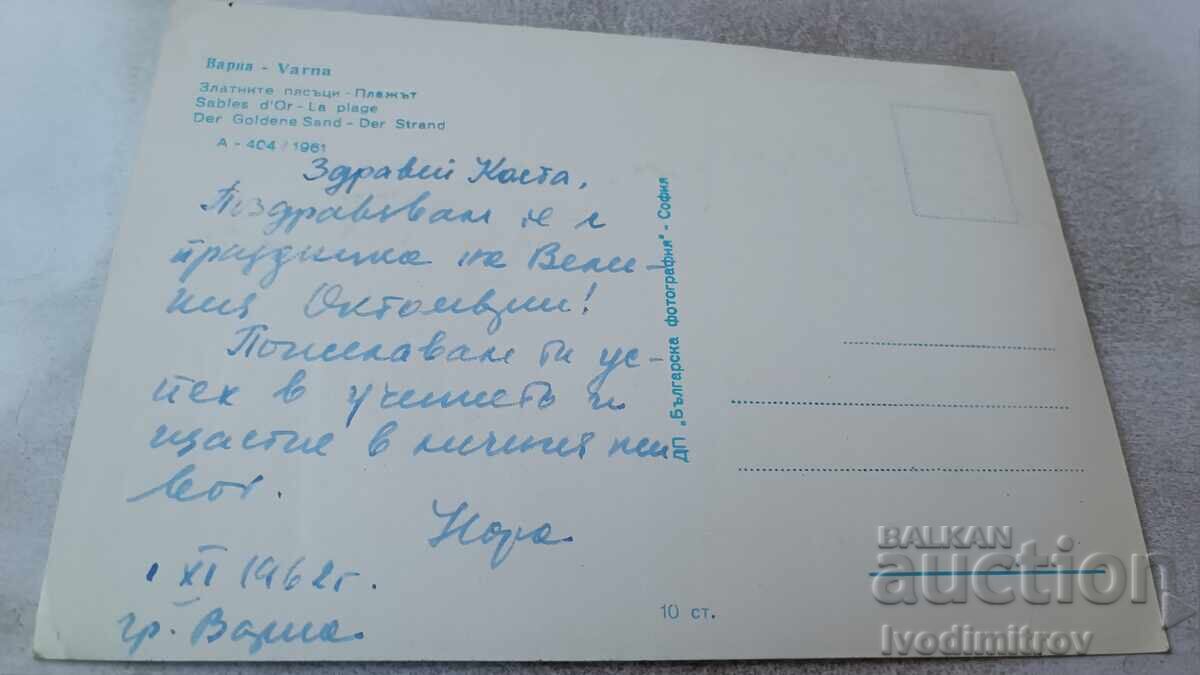 Варна - Varna
Златните пясъци - Плажът
Sables d'Or - La plage
Der Goldene Sand - Der Strand
А - 404 / 1961
Здравей Коста,
Поздравявам те с
празника на Вели-
кия Октомври!
Пожелавам ти ус-
пех в учението и
щастие в личния жи
вот.
Нора
1 XI 1962 г.
гр. Варна.
ДП „Българска фотография" - София
10 ст.
BALKAN
auction
Ivodimitrov